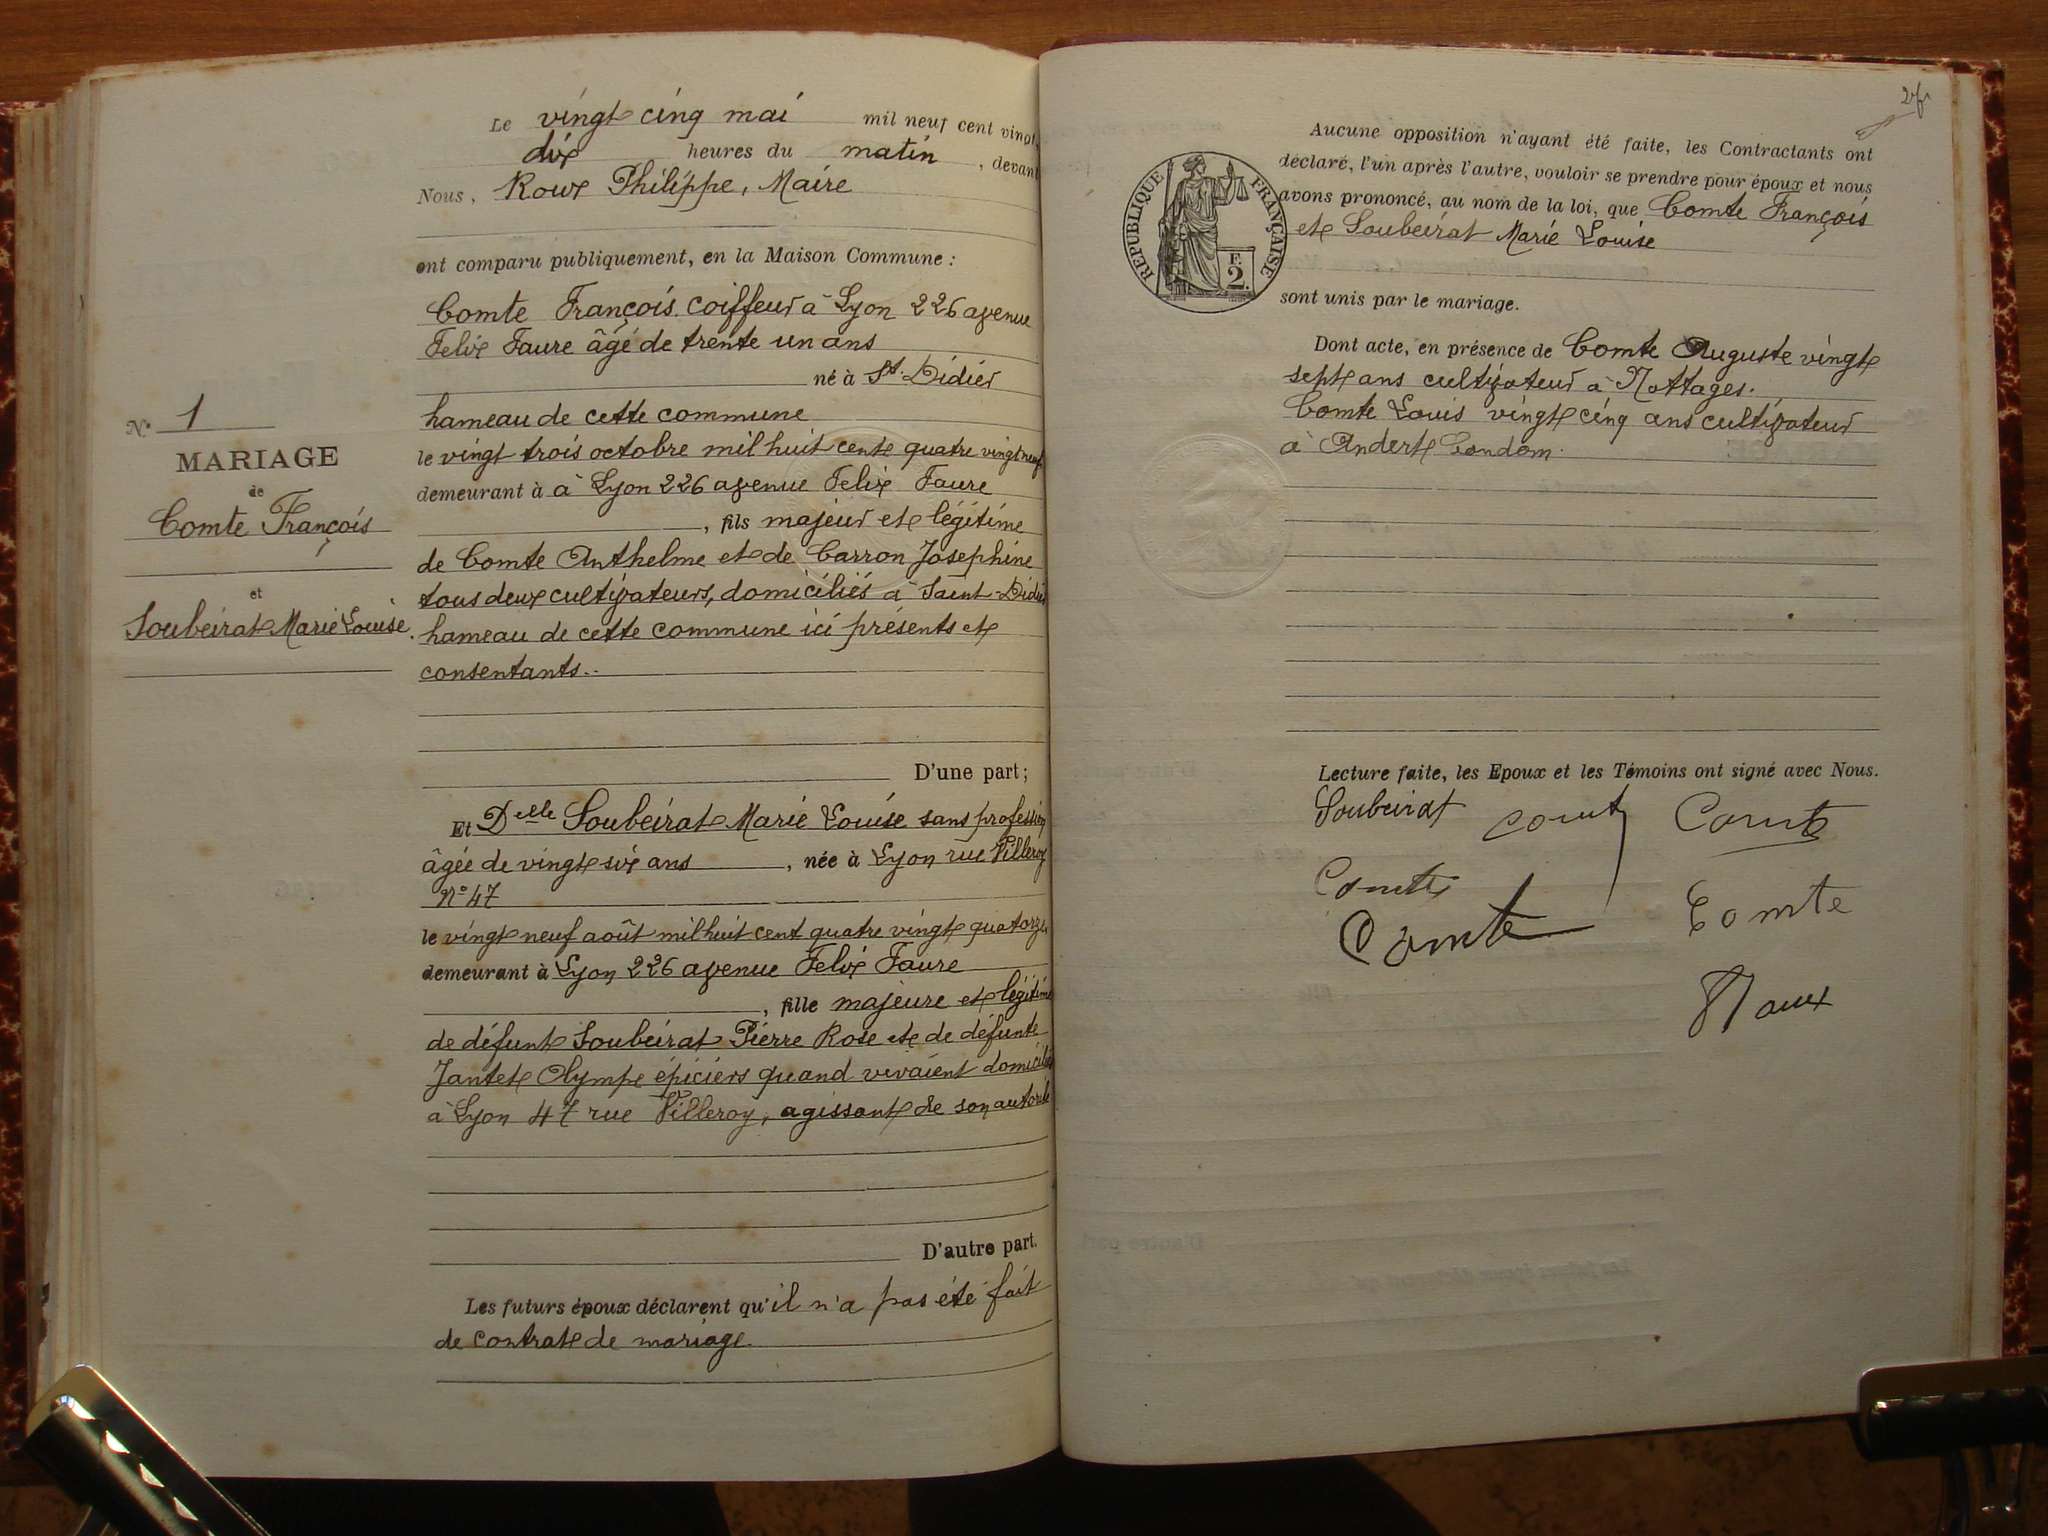 N° 1
MARIAGE
de
Comte François
et
Soubeirat Marie Louise.
Le vingt cinq mai mil neuf cent vingt,
dix heures du matin, devant
Nous, Roux Philippe, Maire
ont comparu publiquement, en la Maison Commune :
Comte François coiffeur à Lyon 226 avenue
Felix Faure âgé de trente un ans
né à St. Didier
hameau de cette commune
le vingt trois octobre mil huit cent quatre vingt neuf
demeurant à à Lyon 226 avenue Felix Faure
, fils majeur et légitime
de Comte Anthelme et de Carron Josephine
tous deux cultivateurs, domiciliés à Saint-Didier
hameau de cette commune ici présents et
consentants..
D'une part;
Et Delle Soubeirat Marie Louise sans profession
âgée de vingt six ans, née à Lyon rue Villeroy
N° 47
le vingt neuf août mil huit cent quatre vingt quatorze,
demeurant à Lyon 226 avenue Felix Faure
, fille majeure et légitime
de défunt Soubeirat Pierre Rose et de défunte
Jantet Olympe épiciers quand vivaient domiciliés
à Lyon 47 rue Villeroy, agissant de son autorité
D'autre part.
Les futurs époux déclarent qu'il n'a pas été fait
de contrat de mariage
Aucune opposition n'ayant été faite, les Contractants ont
déclaré, l'un après l'autre, vouloir se prendre pour époux et nous
avons prononcé, au nom de la loi, que Comte François
et Soubeirat Marie Louise
RÉPUBLIQUE FRANÇAISE
F.
2.
sont unis par le mariage.
Dont acte, en présence de Comte Auguste vingt
sept ans cultivateur à Nattages.
Comte Louis vingt cinq ans cultivateur
à Andert Condom.
Lecture faite, les Epoux et les Témoins ont signé avec Nous.
Soubeirat Comte Comte
Comte
Comte Comte
Roux